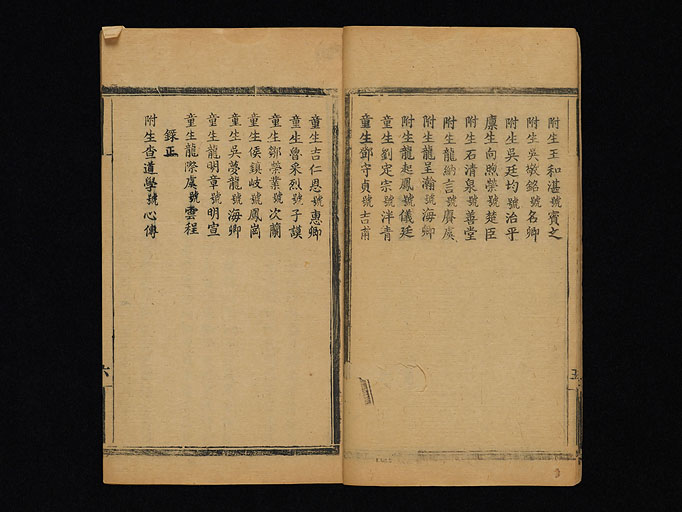 附生王和湛號賓之
附生吳校銘號名卿
附生吳廷均號治平
廩生向煦榮號楚臣
附生石清泉號善堂
附生龍納言號賡虞
附生龍呈瀚號海卿
附生龍起鳳號儀廷
童生劉定宗號泮青
童生鄧守貞號吉甫
五
童生吉仁恩號惠卿
童生魯采烈號子謨
童生鄒榮業號次蘭
童生侯鎮岐號鳳岡
童生吳夢龍號海卿
童生龍明章號明宣
童生龍際虞號雲程
錄正
附生查道學號心傳
六